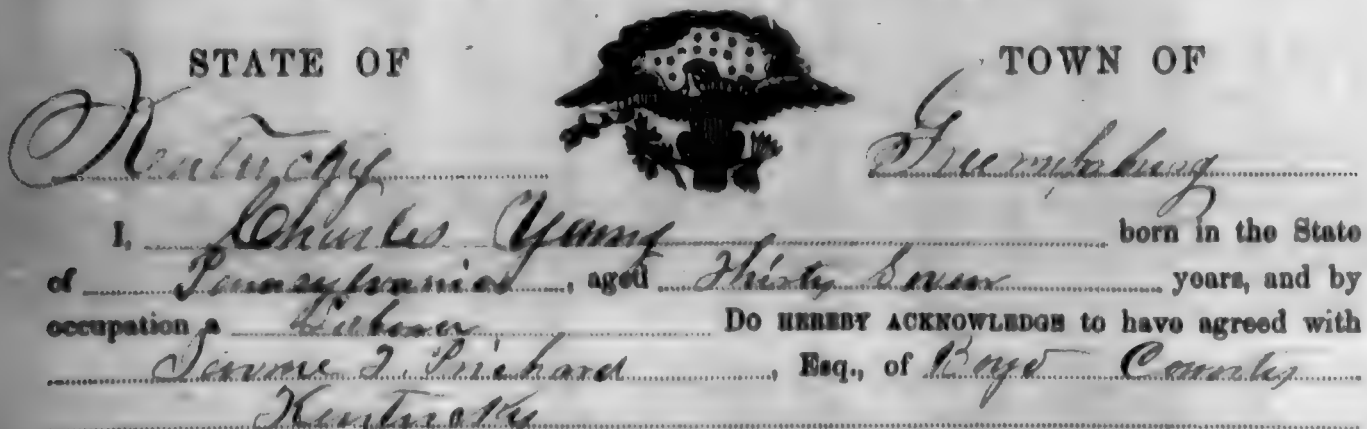 STATE OF TOWN OF
Kentucky Greenupsburg
I, Charles Young born in the State
of Pennsylvania, aged Thirty Seven years, and by
occupation a Laborer Do HEREBY ACKNOWLEDGE to have agreed with
Jerome T. Prichard, Esq., of Boyd County
Kentucky